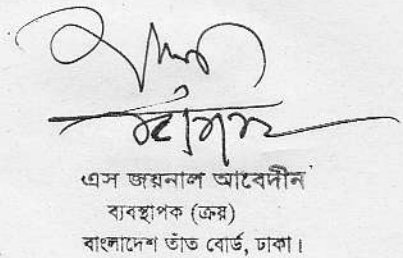 এস জয়নাল আবেদীন
ব্যবস্থাপক (ক্রয়)
বাংলাদেশ তাঁত বোর্ড, ঢাকা।